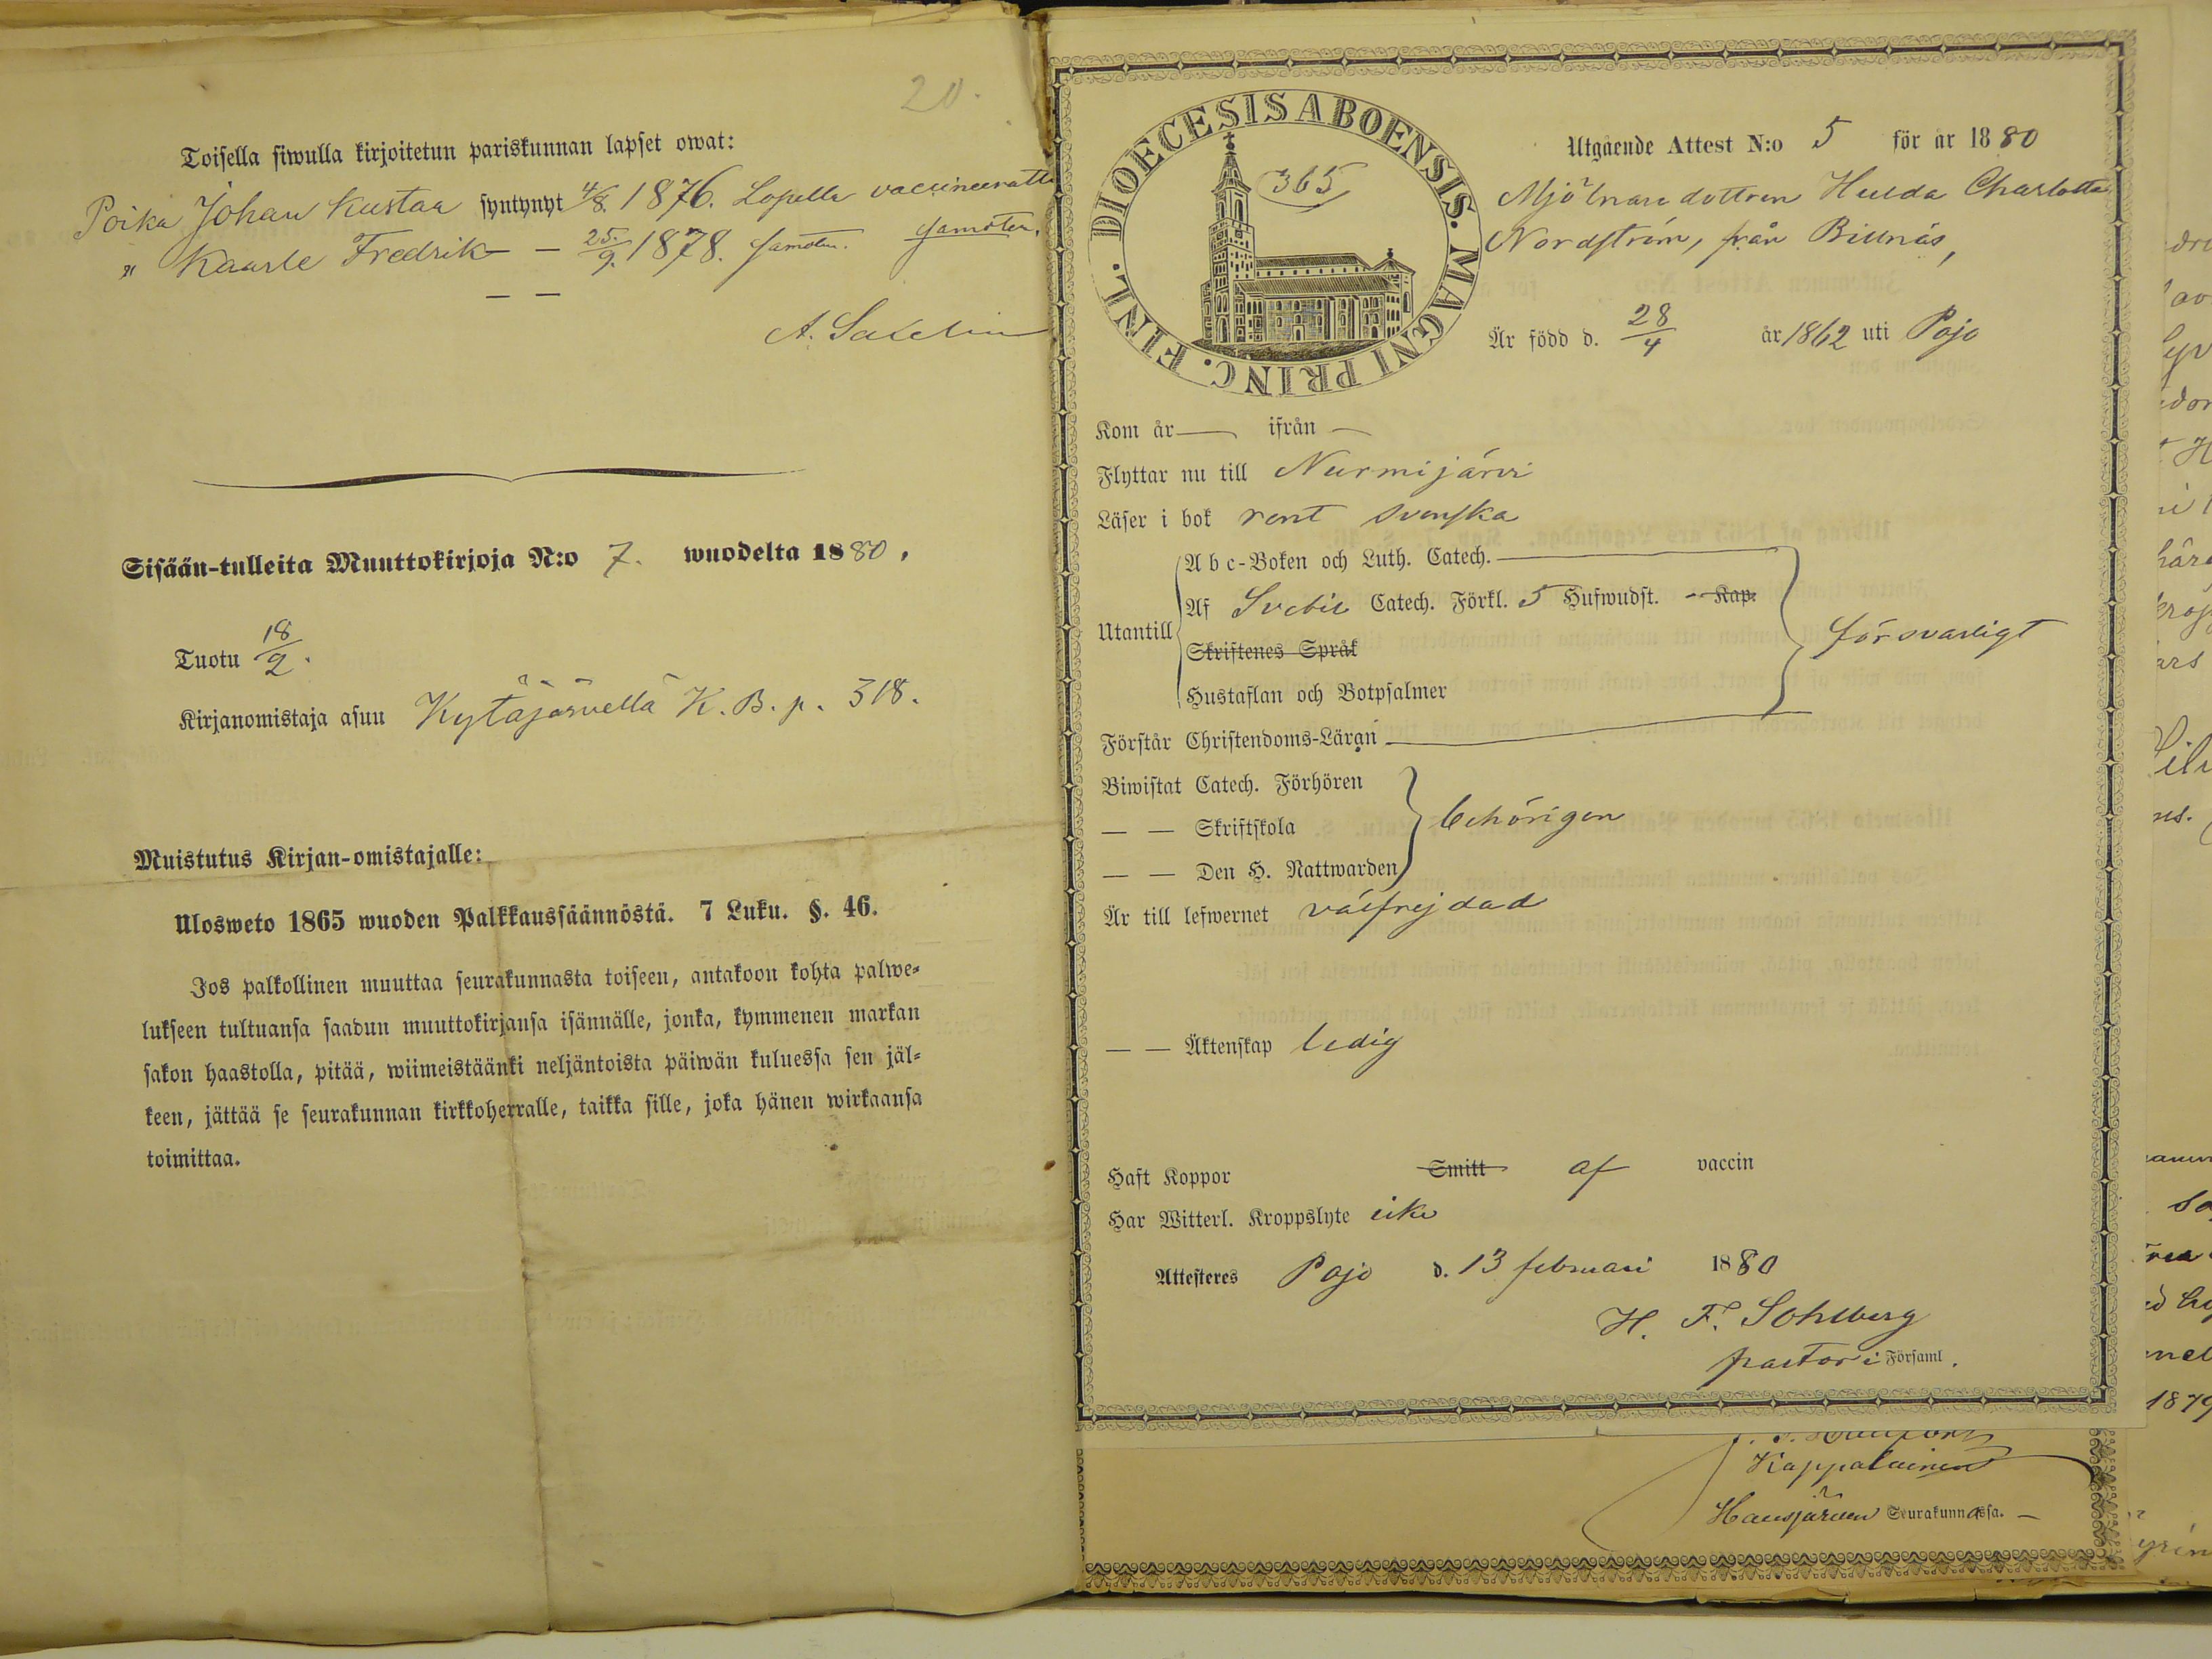 20.
Toisella siwulla kirjoitetun pariskunnan lapset owat:
Poika Johan Kustaa syntynyt 4/8. 1876. Lopella vaccineerattu
" Kaarle Fredrik — — 25./9. 1878. samoten. samoten.
— —
A.
Sisään-tulleita Muuttokirjoja N:o 7. wuodelta 1880.
Tuotu 18/2.
Kirjanomistaja asuu Kytäjärvellä K. B. p. 318.
Muistutus Kirjan-omistajalle:
Ulosweto 1865 wuoden Palkkaussäännöstä. 7 Luku. §. 46.
Jos palkollinen muuttaa seurakunnasta toiseen, antakoon kohta palwe-
lukseen tultuansa saadun muuttokirjansa isännälle, jonka, kymmenen markan
sakon haastolla, pitää, wiimeistäänki neljäntoista päiwän kuluessa sen jäl-
keen, jättää se seurakunnan kirkkoherralle, taikka sille, joka hänen wirkaansa
toimittaa.
DIOECESIS ABOENSIS. MAGNI PRINC. FINL.
365
Utgående Attest N:o 5 för år 1880
Mjölnare dottren Hulda Charlotta
Nordström, från Billnäs,
Är född d. 28/4 år 1862 uti Pojo
Kom år — ifrån —
Flyttar nu till Nurmijärvi
Läser i bok rent svenska
Utantill
A b c-Boken och Luth. Catech.
Af Svebil Catech. Förkl. 5 Hufwudst. - Kap.
Skriftenes Språk
Hustaflan och Botpsalmer
försvarligt
Förstår Christendoms-Läran
Biwistat Catech. Förhören
— — Skriftskola
— — Den H. Nattwarden
behörigen
Är till lefwernet välfrejdad
— — Äktenskap ledig
Haft Koppor Smitt af vaccin
Har Witterl. Kroppslyte icke
Attesteres Pojo d. 13 februari 1880
H. F. Sohlberg
pastor i Församl.
Kappalainen
Hausjärven Seurakunnassa. —
1879